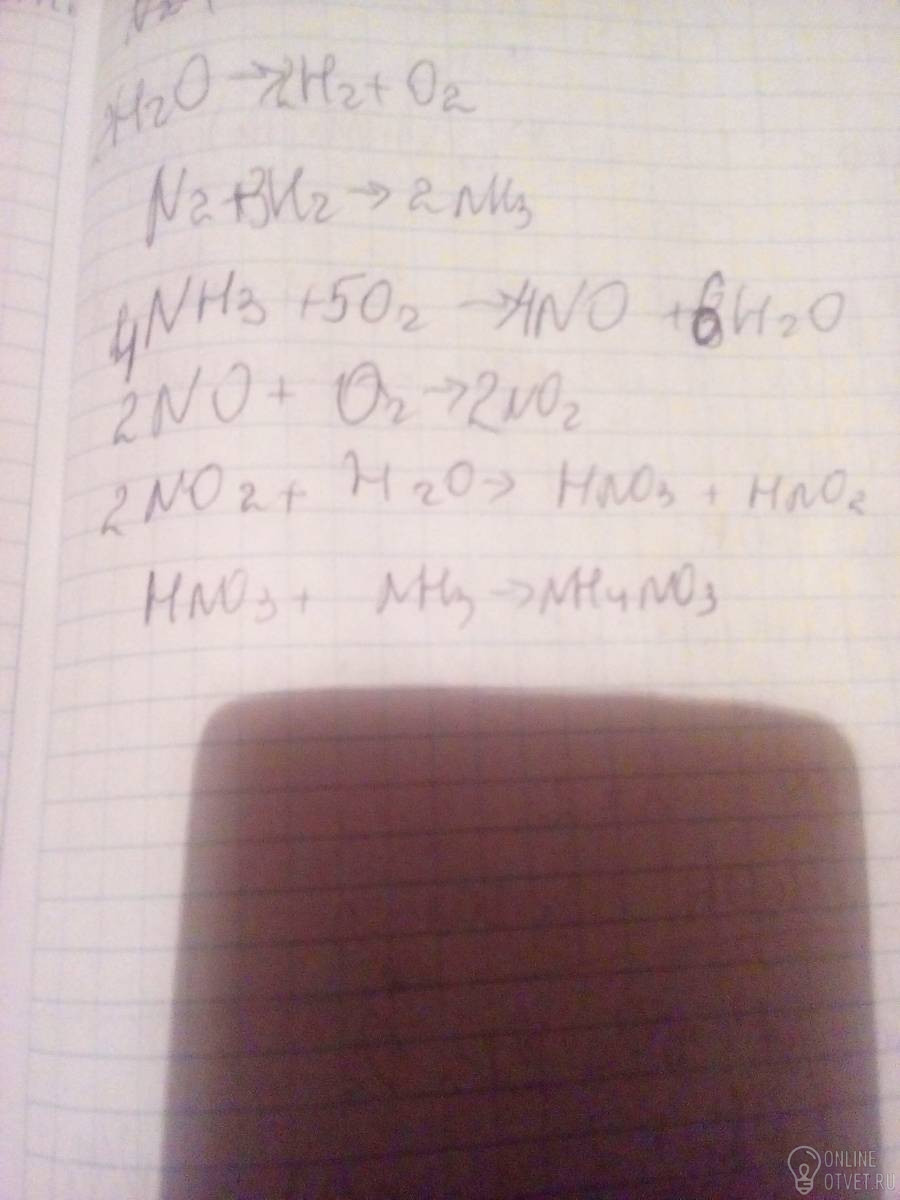 2H₂O → 2H₂ + O₂
N₂ + 3H₂ → 2NH₃
4NH₃ + 5O₂ → 4NO + 6H₂O
2NO + O₂ → 2NO₂
2NO₂ + H₂O → HNO₃ + HNO₂
HNO₃ + NH₃ → NH₄NO₃
ONLINE
OTVET.RU